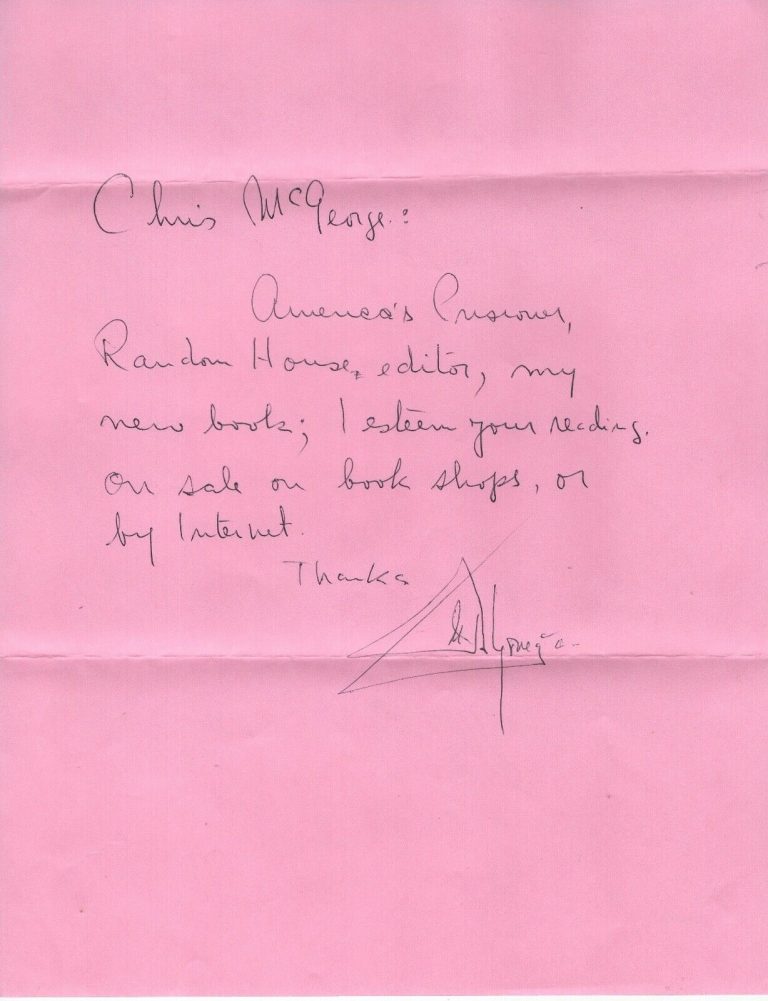 Chris McGeorge:
America's Prisoner,
Random House, editor, my
new book; I esteem your reading.
On sale on book shops, or
by Internet.
Thanks